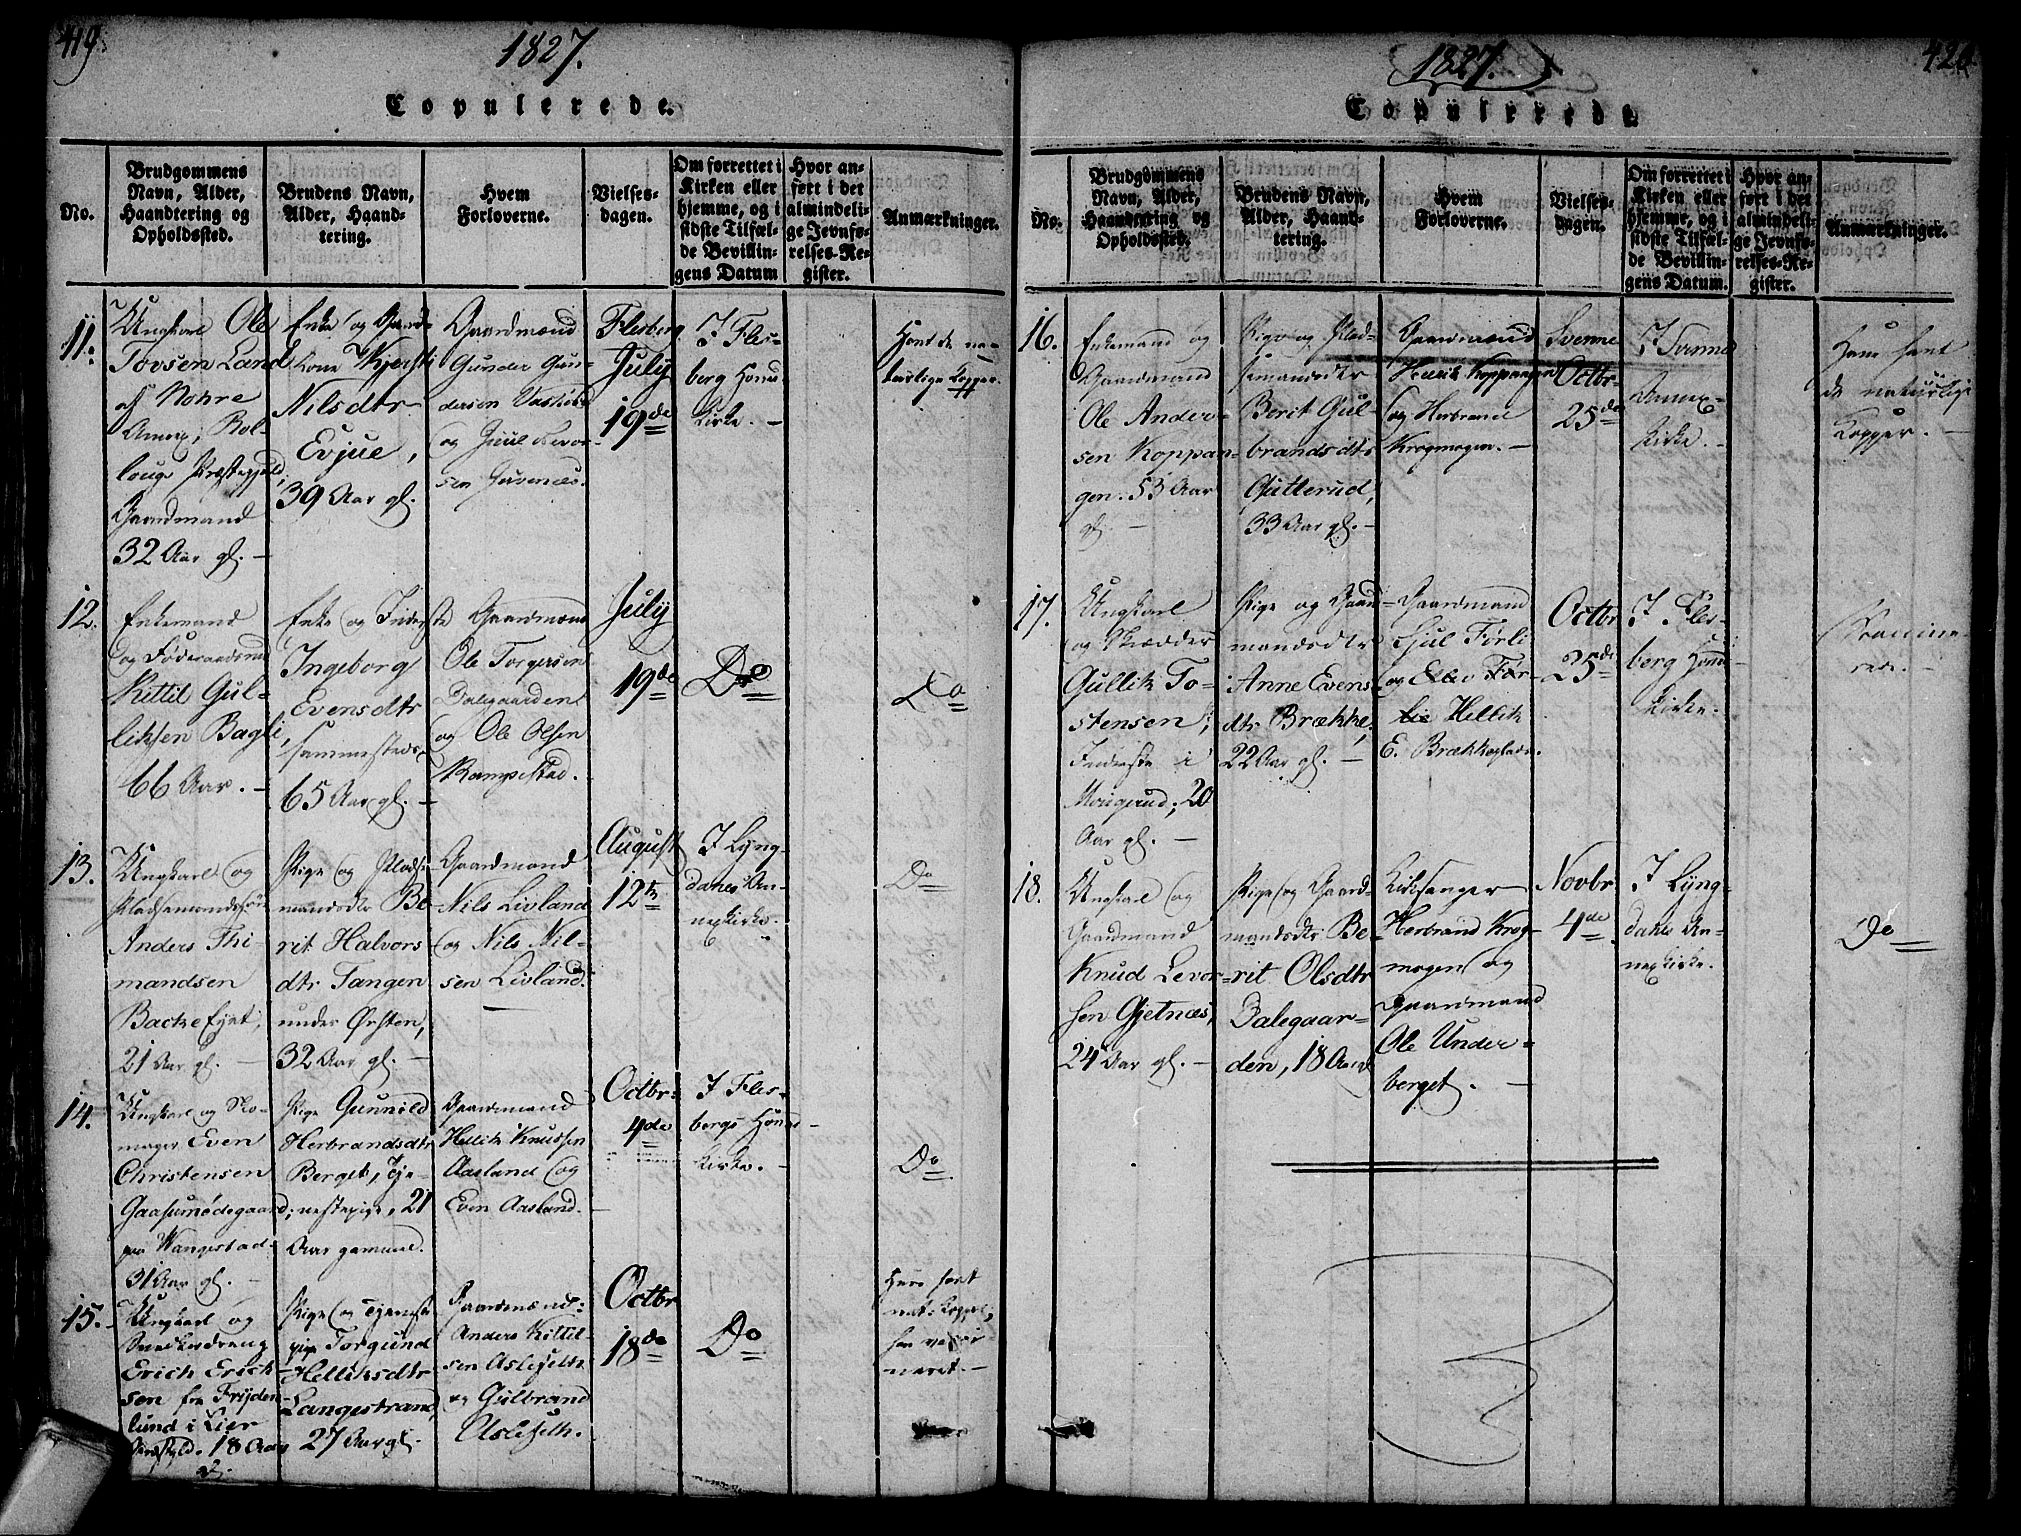 419
1827.
Copulerede.
No.
Brudgommens
Navn, Alder,
Haandtering og
Opholdssted.
Brudens Navn,
Alder, Haand-
tering.
Hvem
Forloverne.
Vielses-
dagen.
Om forrettet i
Kirken eller
hjemme, og i
sidste Tilfæl-
de Bevillin-
gens Datum
Hvor an-
ført i det
almindeli-
ge Jevnfø-
relses-Re-
gister.
Anmærkninger.
11.
Ungkarl Ole
Tovsen Land
af Nohre
Annex, Rol-
lougs Præstegjeld,
Gaardmand
32 Aar gl. —
Enke og Gaard-
kone Kjersti
Nilsdtr
Evjue,
39 Aar gl.
Gaardmænd
Gunder Gun-
dersen
og Juul
sen Juvenæs.
Flesberg
July
19de
I Fles-
berg Hoved
Kirke. —
Havt de na-
turlige Kopper.
12.
Enkemand
og Føderaadsmand
Kittil Gul-
liksen Bagli,
66 Aar. —
Enke og Inderste
Ingeborg
Evensdtr
sammesteds,
65 Aar gl. —
Gaardmænd
Ole Torgersen
Dalegaarden
og Ole Olsen
Rampestad.
July
19de
Do
Do
13.
Ungkarl og
Pladsemandssøn
Anders Thi-
mandsen
Backe Eyet,
21 Aar gl. —
Pige og Pladse-
mandsdtr Be-
rit Halvors
dtr Tangen
under Ørsten,
32 Aar gl. —
Gaardmænd
Nils Livland
og Nils Nil-
sen Livland.
August
12te
I Lyng-
dals An-
nexkirke.
Do
14.
Ungkarl og Sko-
mager Even
Christensen
Gaasumødegaard,
paa Wangestad.
31 Aar gl. —
Pige Gunnild
Herbrandsdtr
Berget, Tje-
nestepige, 21
Aar gammel.
Gaardmænd
Hellik Knudsen
Aasland og
Even Aasland. —
Octbr:
4de
I Fles-
bergs Hoved-
Kirke. —
Do
15.
Ungkarl og
Erich Erich-
sen fra Frijden-
lund i Lier
Præstgjld. 18 Aar
gl.
Pige og Tjeneste
pige Torgund
Helliksdtr
Langestrand,
27 Aar gl.
Gaardmænd:
Anders Kittil-
sen Aslefeth
og Gulbrand
Aslefeth.
Octbr
18de
Do
Hun havt
nat: Kopper,
han vacci-
neret. —
420
1827.
Copulerede.
No.
Brudgommens
Navn, Alder,
Haandtering og
Opholdssted.
Brudens Navn,
Alder, Haand-
tering.
Hvem
Forloverne.
Vielses-
dagen.
Om forrettet i
Kirken eller
hjemme, og i
sidste Tilfæl-
de Bevillin-
gens Datum.
Hvor an-
ført i det
almindeli-
ge Jevnfø-
relses-Re-
gister.
Anmærkninger.
16.
Enkemand og
Gaardmand
Ole Ander-
sen Koppan-
gen. 53 Aar
gl. —
Pige og Plad-
semandsdtr
Berit Gul-
brandsdtr
Gutterud,
33 Aar gl. —
Gaardmænd
Henrik Koppangen
og Herbrand
Krogmogen. —
Svenne
Octbr
25de
I Svenne
Annex-
kirke. —
Have havt
de naturlige
Kopper. —
17.
Ungkarl
og Skrædder
Gullik To-
stensen,
Inderste i
Morigerud; 20
Aar gl. —
Pige og Gaard-
mandsdtr
Anne Evens
dtr Brække,
22 Aar gl. —
Gaardmænd
Ljul Førli
og Hellik
E. Brækkeplads.
Octbr
25de
I Fles-
berg Hoved-
kirke.
Vaccine-
rede. —
18.
Ungkarl og
Gaardmand
Knud Levor-
sen Gjetnæs,
24 Aar gl. —
Pige og Gaard-
mandsdtr Be-
rit Olsdtr
Dalegaar-
den, 18 Aar gl
Kirkesanger
Herbrand Krog-
mogen og
Gaardmand
Ole Under-
berget. —
Novbr
4de
I Lyng-
dals An-
nexkirke.
Do